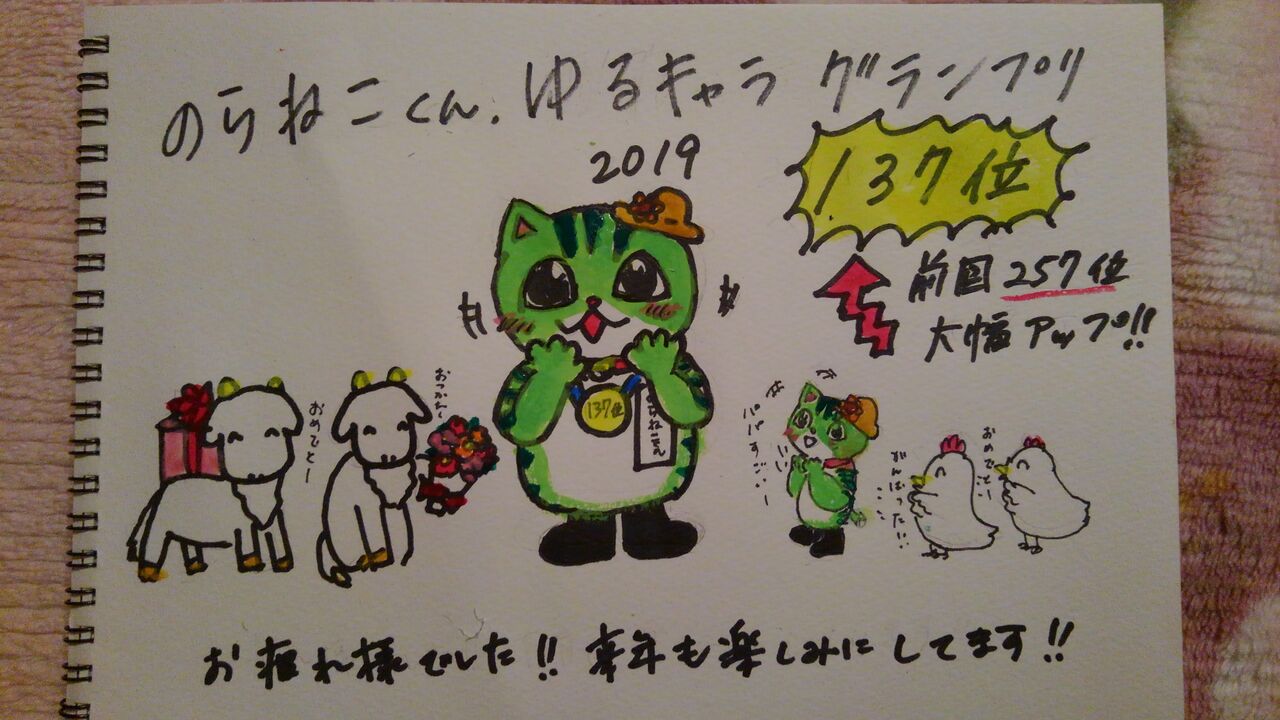 のらねこくん、ゆるキャラ グランプリ
2019
137位
前回257位
大幅アップ!!
おめでとー
おつかれ〜
137位
のらねこくん
パパすご…ー
がんばったに…
おめでとー
お疲れ様でした!! 来年も楽しみにしてます!!